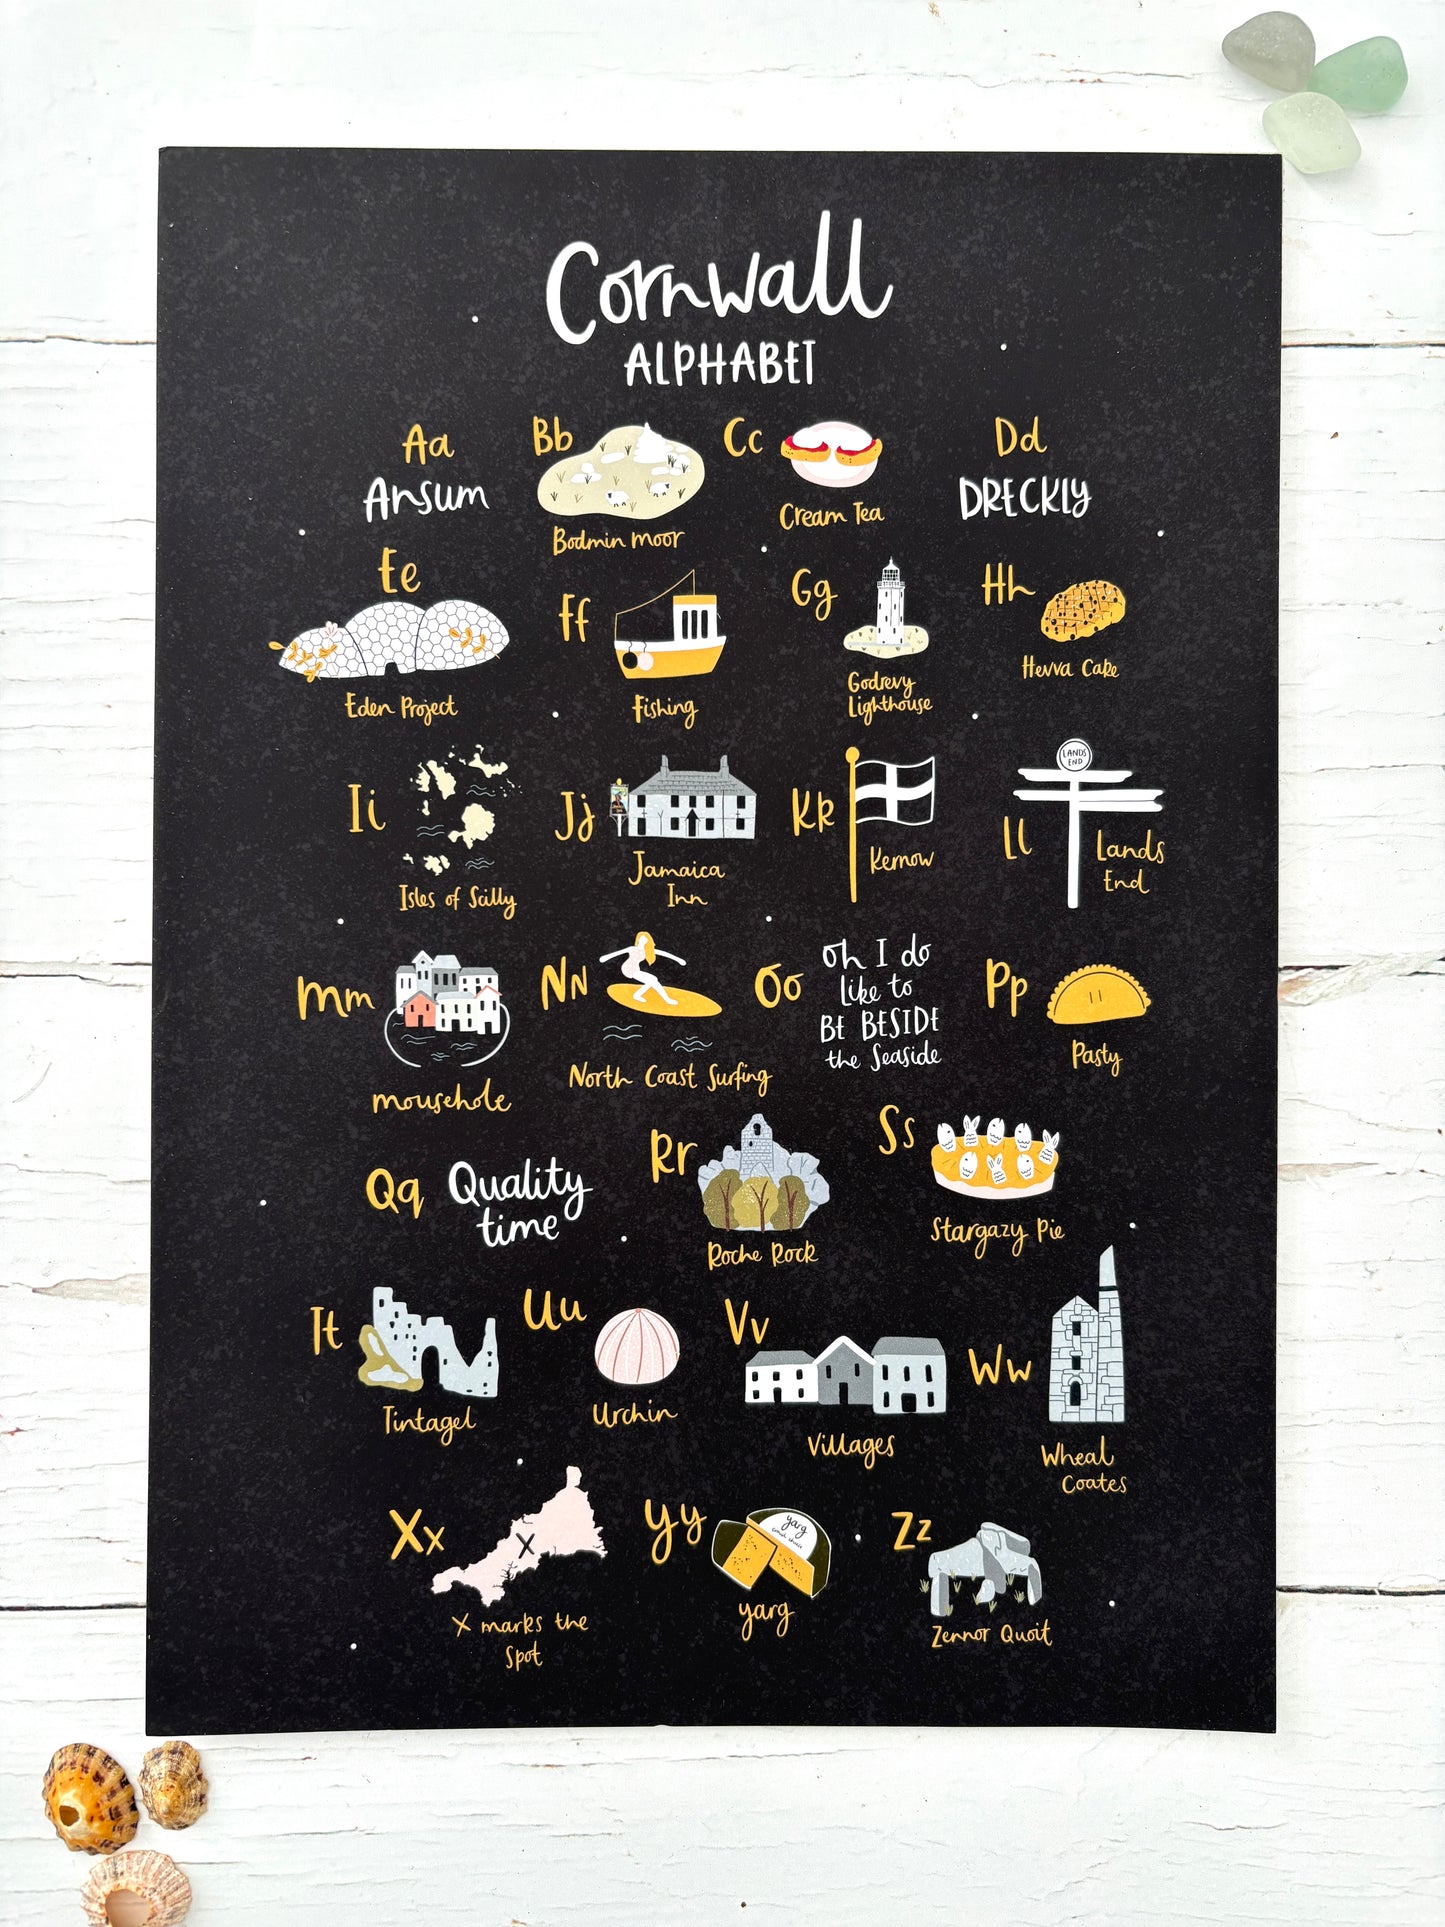 Cornwall
ALPHABET
Aa
Ansum
Bb
Bodmin moor
Cc
Cream Tea
Dd
DRECKLY
Ee
Eden Project
Ff
Fishing
Gg
Godrevy
Lighthouse
Hh
Hevva Cake
Ii
Isles of Scilly
Jj
Jamaica
Inn
Kk
Kernow
LANDS
END
Ll
Lands
End
Mm
mousehole
Nn
North Coast Surfing
Oo
oh I do
like to
BE BESIDE
the Seaside
Pp
Pasty
Qq
Quality
time
Rr
Roche Rock
Ss
Stargazy Pie
Tt
Tintagel
Uu
Urchin
Vv
Villages
Ww
Wheal
Coates
Xx
X
X marks the
Spot
Yy
yarg
yarg
Zz
Zennor Quoit